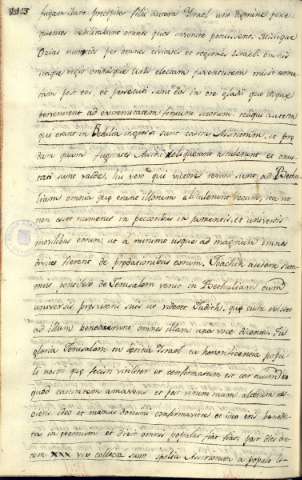 fugam ibant precipites filii autem Israel uno agmine perse
quentes debilitabant omnes quos invenire potuissent. Misit itaque
Ozias nuncios per omnes civitates et regiones Israel omnis
itaque regio omnisque urbs electam juventutem misit arma
tam post eos et persecuti sunt eos in ore gladii quo usque
pervenirent ad extremitatem finium suorum reliqui autem
qui erant in Betulia ingressi sunt castra Assiriorum, et pre
dam quam fugientes Assirii reliquerant abstulerunt et onus
tati sunt valde. hi vero qui victores reversi sunt ad Bethu
liam omnia que erant illorum attulerunt secum, ita ut
non esset numerus in pecoribus et jumentis, et universis
mobilibus eorum, ut a minimo usque ad magnum omnes
divites fierent de predacionibus eorum. Joachim autem sum
mus pontifex de Jerusalem venit in Bethuliam cum
universis presviteris suis ut videret Judith, que cum exisset
ad illum benedixerunt omnes illam una voce dicentes. Tu
gloria Jerusalem tu leticia Israel tu honorificencia popu
li nostri que fecisti viriliter et confortatum est cor tuum eo
quod castitatem amaveris et post virum tuum alterum ne
scieris ideo et manus domini confortavit te et ideo eris benedic
ta in eternum et dixit omnis populus fiat fiat. per dies au
tem XXX vix collecta sunt spolia Assiriorum a populo Is